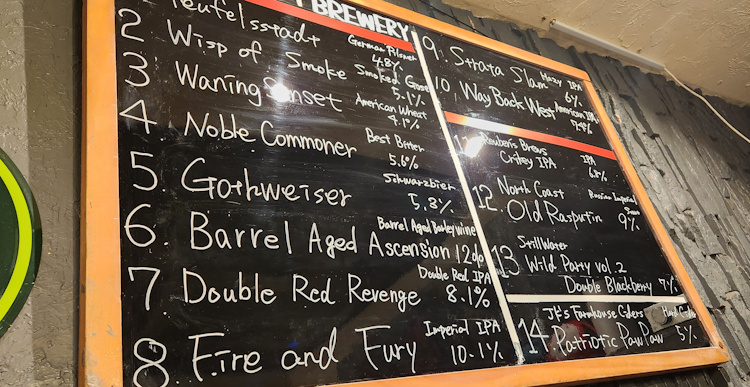 BREWERY
Teufelsstadt German Pilsner 4.8%
2. Wisp of Smoke Smoked Gose 5.1%
3 Waning Sunset American Wheat 4.1%
4. Noble Commoner Best Bitter 5.6%
5. Gothweiser Schwarzbier 5.8%
6. Barrel Aged Ascension Barrel Aged Barleywine 12%
7. Double Red Revenge Double Red IPA 8.1%
8. Fire and Fury Imperial IPA 10.1%
9. Strata Slam Hazy IPA 6%
10. Way Back West American IPA
Reuben's Brews
Crikey IPA IPA 6.8%
12. North Coast
Old Rasputin Russian Imperial Stout 9%
13 Stillwater
Wild Party vol.2
Double Blackberry
14. JK's Farmhouse Ciders Hard Cider
Patriotic PawPaw 5%